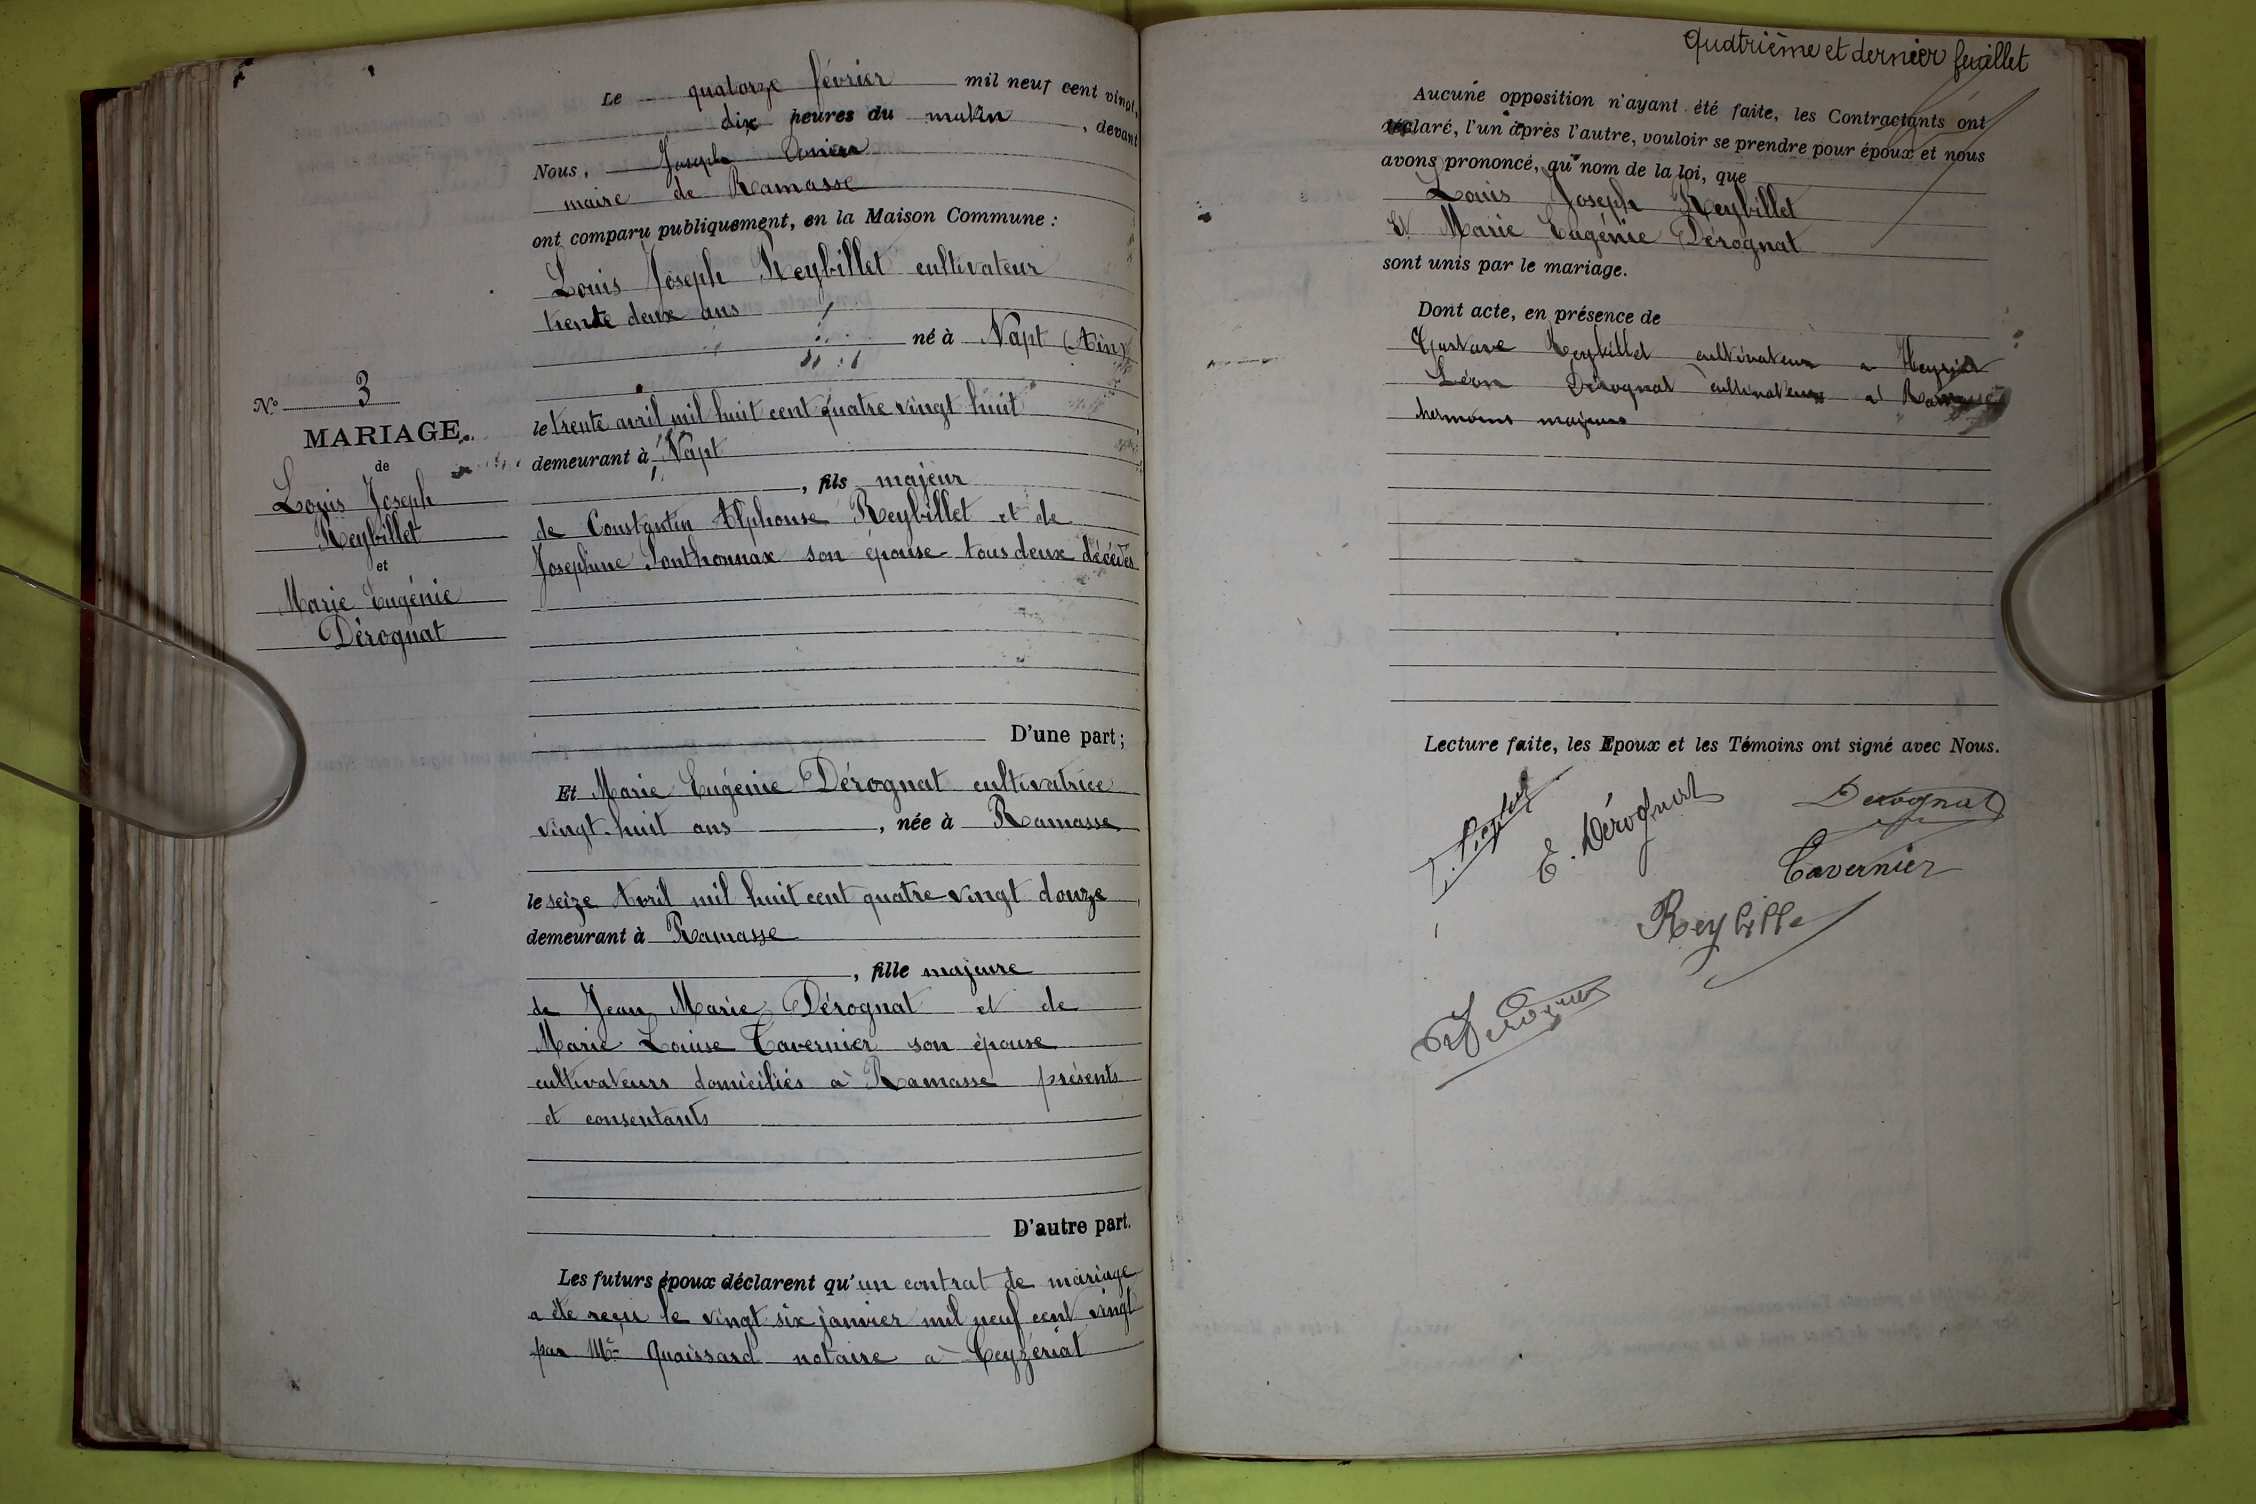 Le quatorze février mil neuf cent vingt,
dix heures du matin, devant
Nous, Joseph
maire de Ramasse
ont comparu publiquement, en la Maison Commune :
Louis Joseph Reybillet cultivateur
trente deux ans
né à Napt (Ain)
le trente avril mil huit cent quatre vingt huit
demeurant à Napt
, fils majeur
de Constantin Alphonse Reybillet et de
Joséphine Sonthonnax son épouse tous deux décédés
D'une part;
Et Marie Eugénie Dérognat cultivatrice
vingt-huit ans, née à Ramasse
le seize Avril mil huit cent quatre-vingt douze
demeurant à Ramasse
, fille majeure
de Jean Marie Dérognat et de
Marie Louise Tavernier son épouse
cultivateurs domiciliés à Ramasse présents
et consentants
D'autre part.
Les futurs époux déclarent qu'un contrat de mariage
a été reçu le vingt six janvier mil neuf cent vingt
par Me Quaissard notaire à Ceyzériat
No 3
MARIAGE
de
Louis Joseph
Reybillet
et
Marie Eugénie
Dérognat
Quatrième et dernier feuillet
Aucune opposition n'ayant été faite, les Contractants ont
déclaré, l'un après l'autre, vouloir se prendre pour époux et nous
avons prononcé, au nom de la loi, que
Louis Joseph Reybillet
Et Marie Eugénie Dérognat
sont unis par le mariage.
Dont acte, en présence de
Gustave Reybillet cultivateur à Heyriat
Léon Dérognat cultivateur à Ramasse
témoins majeurs
Lecture faite, les Epoux et les Témoins ont signé avec Nous.
E. Dérognat
Derognat
Tavernier
Reybille